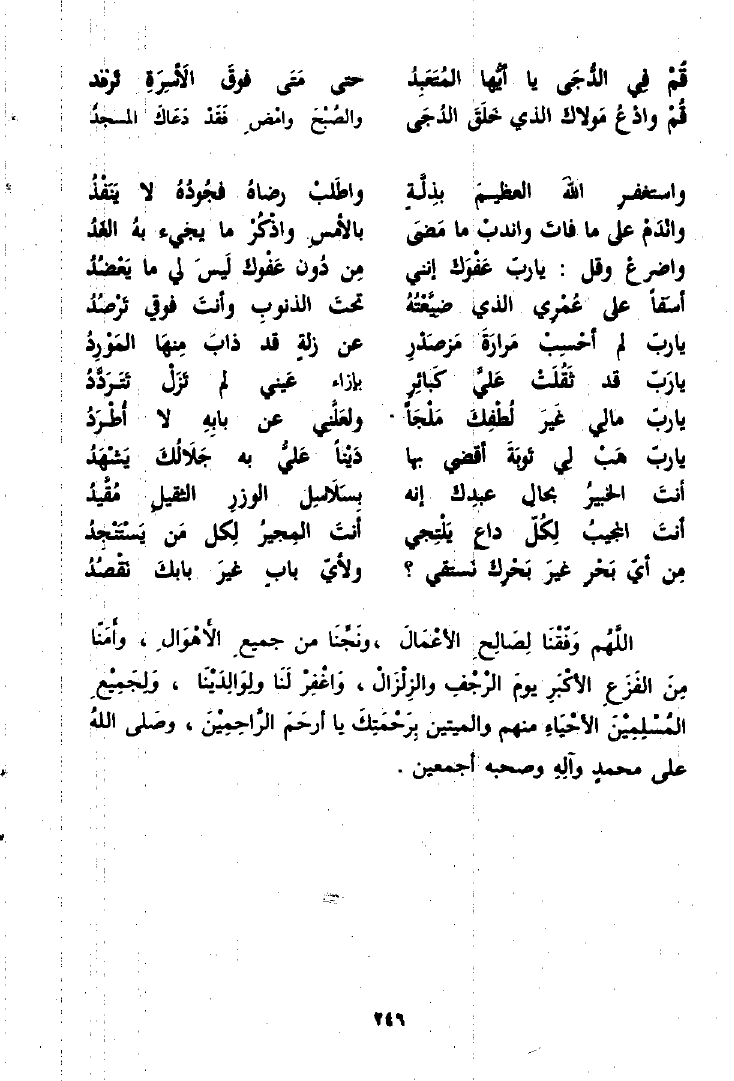 قُمْ فِي الدُّجَى يا أيُّها المُتَعَبِدُ حتى مَتَى فوقَ الأسِرَةِ تَرْقد
قُمْ وادْعُ مَولاك الذي خَلَقَ الدُجَى والصُبْحَ وامْضِ فَقَدْ دَعَاكَ المسجدُ
واستغفرِ اللهَ العظيمَ بذِلَّةٍ واطلُبْ رضاهُ فجُودُهُ لا يَنْفْذُ
وانْدَمْ على ما فاتَ واندبْ ما مَضَى بالأمسِ واذْكُرْ ما يجيء بهُ الغَدُ
واضرعْ وقل : ياربّ عَفْوَكَ إنني مِن دُون عَفْوِك لَيسَ لي ما يَعْضُدُ
أسَفاً على عُمْرِي الذي ضيَّعْتُهُ تحتَ الذنوبِ وأنتَ فوقي تَرْصُدُ
ياربّ لم أحْسِبْ مَرارَةَ مَرْصدْرٍ عن زلةٍ قد ذابَ مِنهَا المَوْرِدُ
يارَبّ قد ثَقُلَتْ عَليَّ كَبائِرٍ بإزاء عَيني لم تَزَلْ تَتَردَّدُ
ياربّ مالي غَيرَ لُطْفِكَ مَلْجَأً ولعَلَّني عن بابِهِ لا أُطْرَدُ
ياربّ هَبْ لي تَوبَةً أقضي بها دَيْناً عَليَّ به جَلَالُكَ يَشْهَدُ
أنتَ الخبيرُ بحالِ عبدِك إنه بِسَلَاسِلِ الوزرِ الثقيلِ مُقَّيدُ
أنتَ المجيبُ لِكُلّ داعٍ يَلْتِجي أنتَ المِجيرُ لِكل مَن يَسْتَنْجِدُ
مِن أيّ بَحْرٍ غيرَ بَحْرِك نَستقي ؟ ولأيّ بابٍ غيرَ بابك نَقْصُدُ
اللَّهُم وَفّقْنَا لِصَالِحِ الأعْمَالَ ،ونَجِّنَا من جميعِ الأَهْوَالِ ، وأمنّا
مِنَ الفَزَعِ الأكْبَرِ يومَ الرْجْفِ والزِلْزَالْ ، وَاغْفِرْ لَنَا ولِوَالِدَيْنَا ، وَلِجَمِيْعِ
المُسْلِمِيْنَ الأحْيَاءِ منهم والميتين بِرَحْمَتِكَ يا أرحَمَ الرَّاحِمِيْنَ ، وصَلى اللهُ
على محمدٍ وآلِهِ وصحبه أجمعين .
٢٤٩